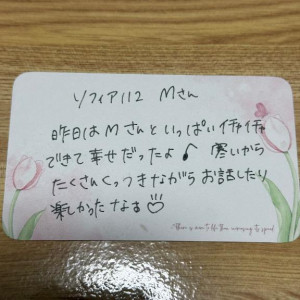 ソフィア112 Mさん
昨日はMさんといっぱいイチャイチャ
できて幸せだったよ♪ 寒いから
たくさんくっつきながらお話したり
楽しかったなぁ
There is more to life than increasing its speed